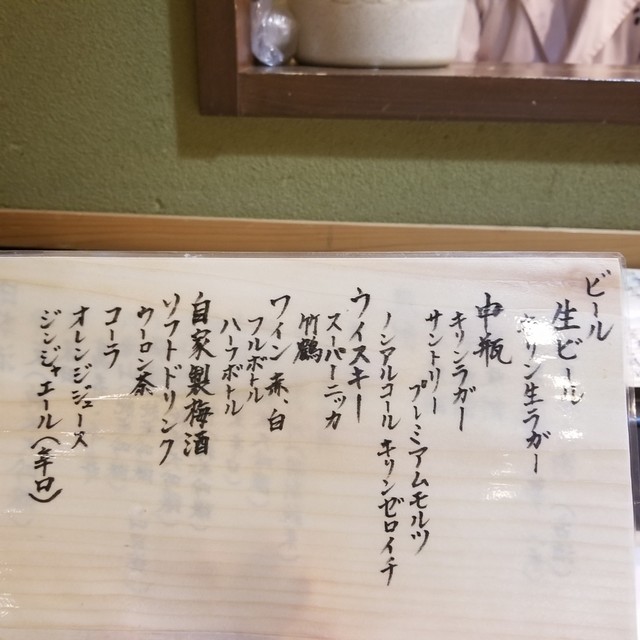 ビール
生ビール
キリン生ラガー
中瓶
キリンラガー
サントリー プレミアムモルツ
ノンアルコール キリンゼロイチ
ウイスキー
スーパーニッカ
竹鶴
ワイン 赤、白
フルボトル
ハーフボトル
自家製梅酒
ソフトドリンク
ウーロン茶
コーラ
オレンジジュース
ジンジャエール(辛口)